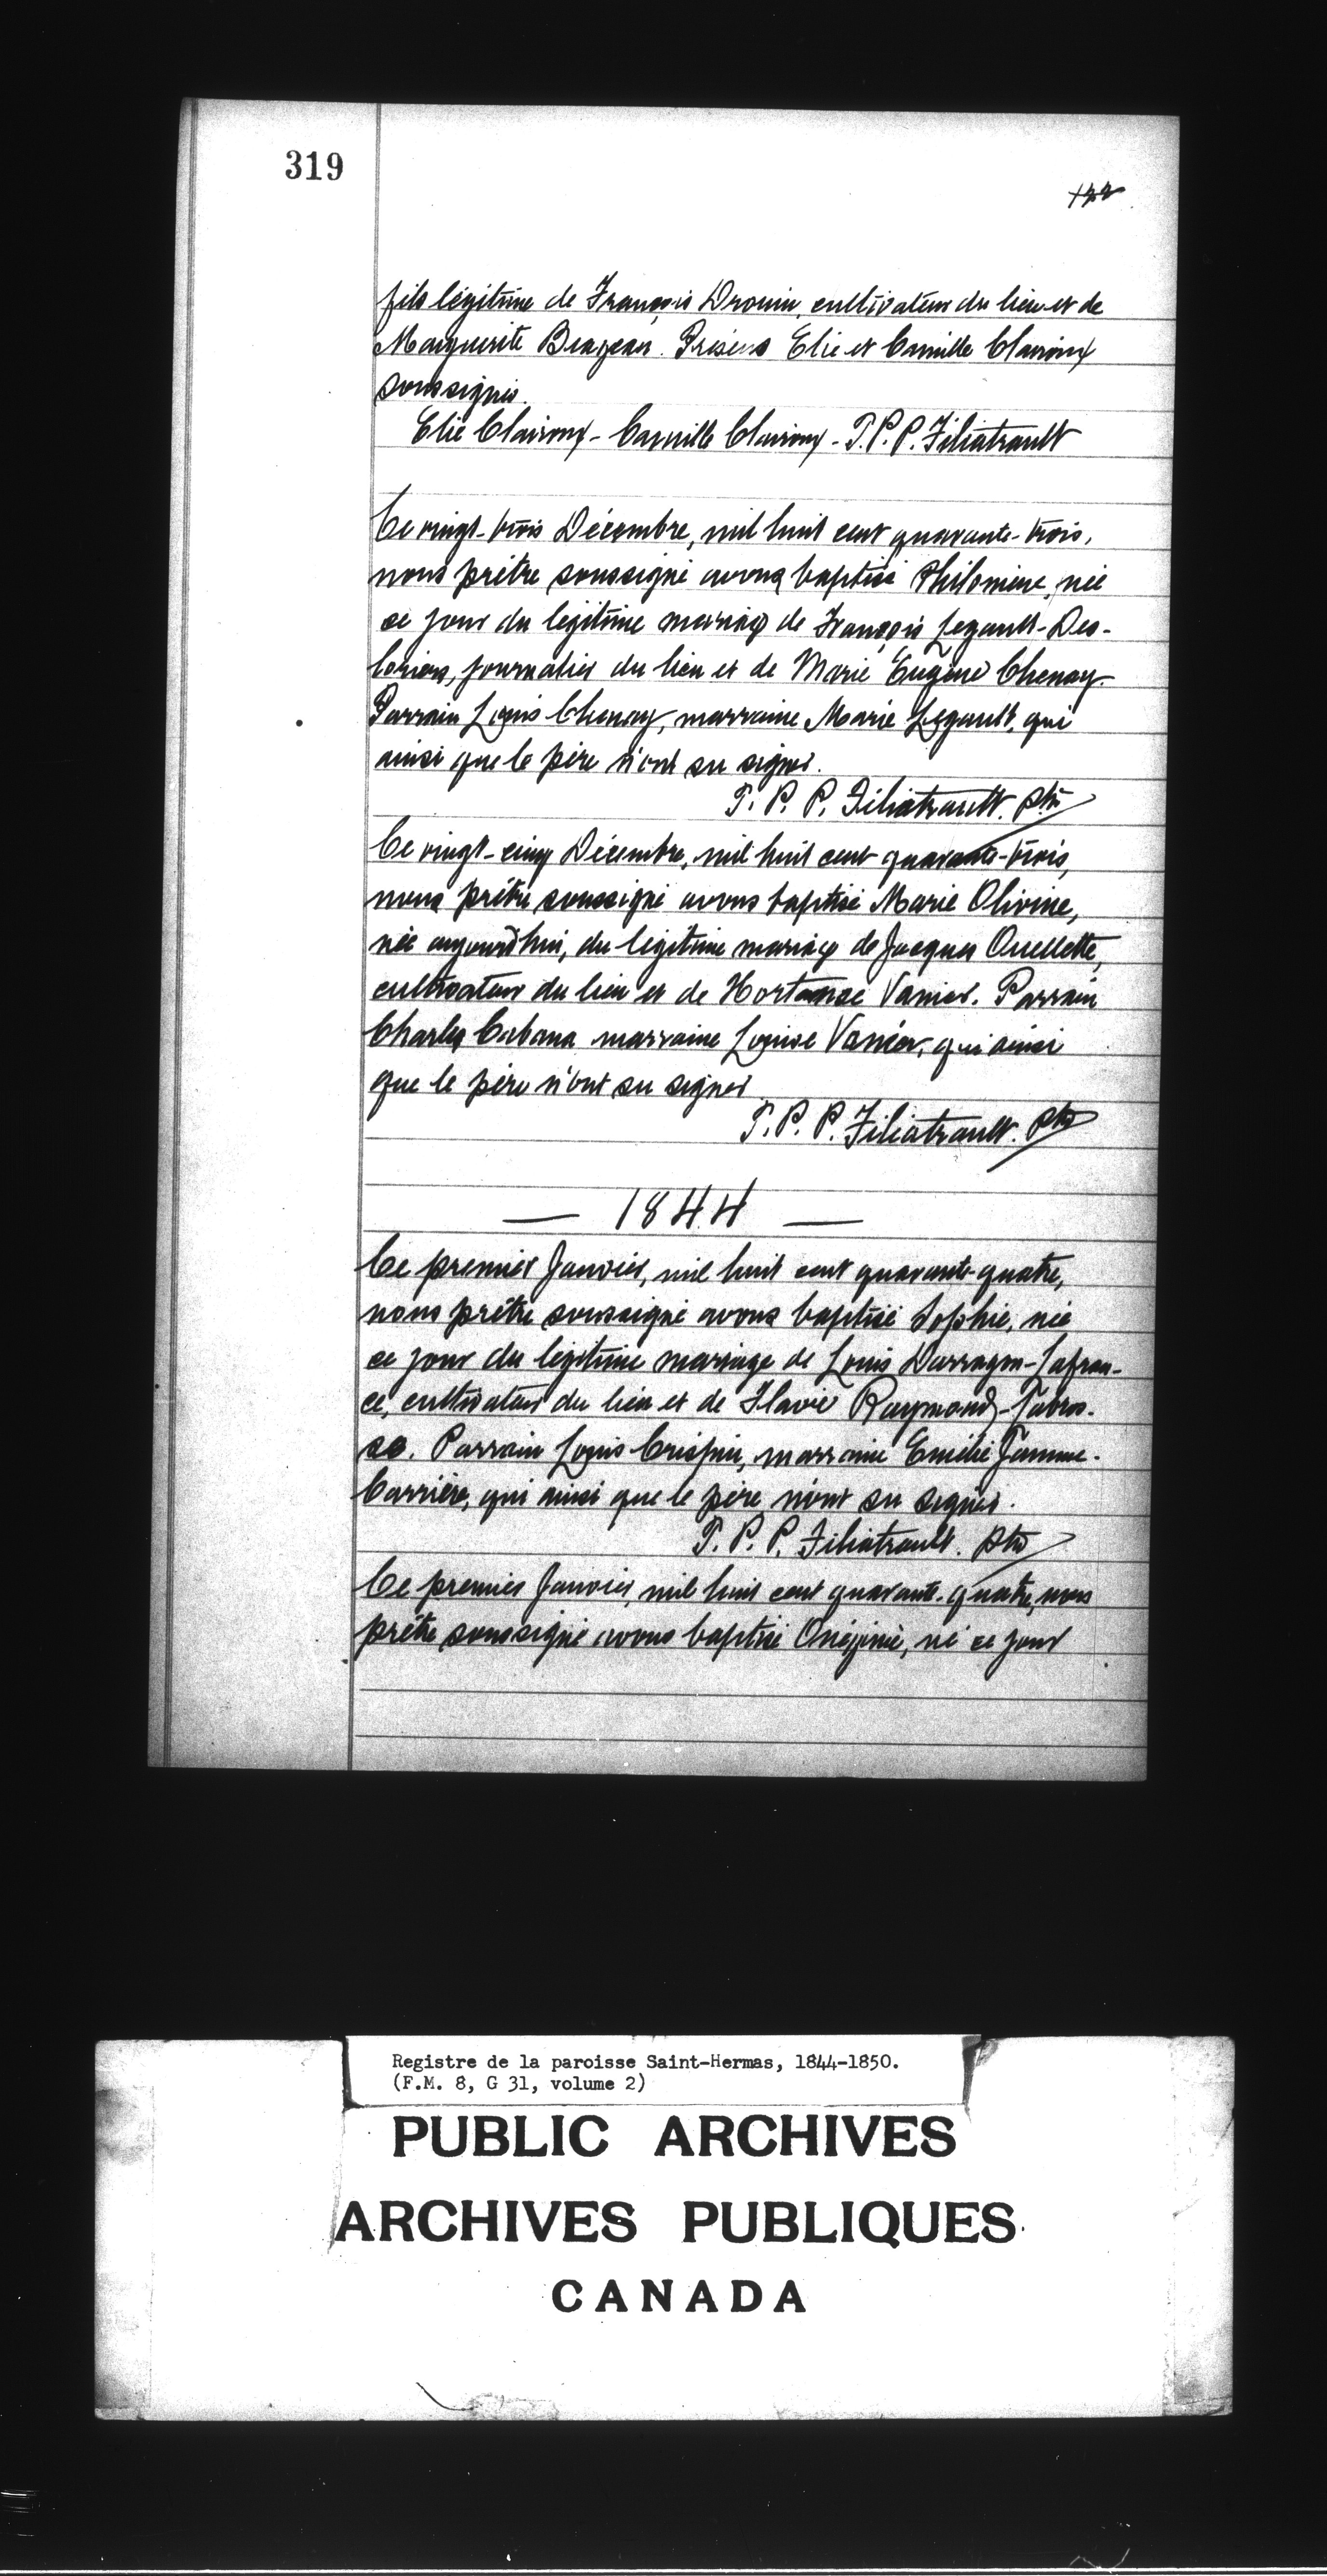 319
122
fils légitime de François Drouin, cultivateur du lieu et de
Marguerite Beaujeau. Présens Elie et Camille Clairoux
soussignés.
Elie Clairoux - Camille Clairoux - T. P. P. Filiatrault
Ce vingt-trois Décembre, mil huit cent quarante-trois,
nous prêtre soussigné avons baptisé Philomène, née
ce jour du légitime mariage de François Legault-Des-
loriers, journalier du lieu et de Marie Eugène Chenay.
Parrain Louis Chenay, marraine Marie Legault, qui
ainsi que le père n'ont su signer.
T. P. P. Filiatrault. ptre
Ce vingt-cinq Décembre, mil huit cent quarante-trois,
nous prêtre soussigné avons baptisé Marie Olivine,
née aujourd'hui, du légitime mariage de Jacques Ouellette,
cultivateur du lieu et de Hortense Vanier. Parrain
Charles Cabana marraine Louise Vanier, qui ainsi
que le père n'ont su signer
T. P. P. Filiatrault. Ptre
— 1844 —
Ce premier Janvier, mil huit cent quarante-quatre,
nous prêtre soussigné avons baptisé Sophie, née
ce jour du légitime mariage de Louis Darragon-Lafran-
ce, cultivateur du lieu et de Flavie Raymond-Labros-
se. Parrain Louis Crispin, marraine Emélie Jamme-
Carrière, qui ainsi que le père n'ont su signer.
T. P. P. Filiatrault. ptre
Ce premier Janvier, mil huit cent quarante-quatre, nous
prêtre soussigné avons baptisé Onésime, né ce jour
Registre de la paroisse Saint-Hermas, 1844-1850.
(F.M. 8, G 31, volume 2)
PUBLIC ARCHIVES
ARCHIVES PUBLIQUES
CANADA